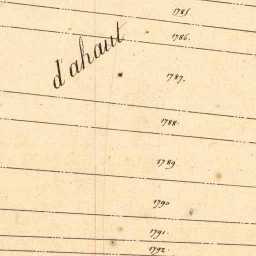 1785
1786.
d'ahaut
1787.
1788.
1789
1790
1791.
1792.